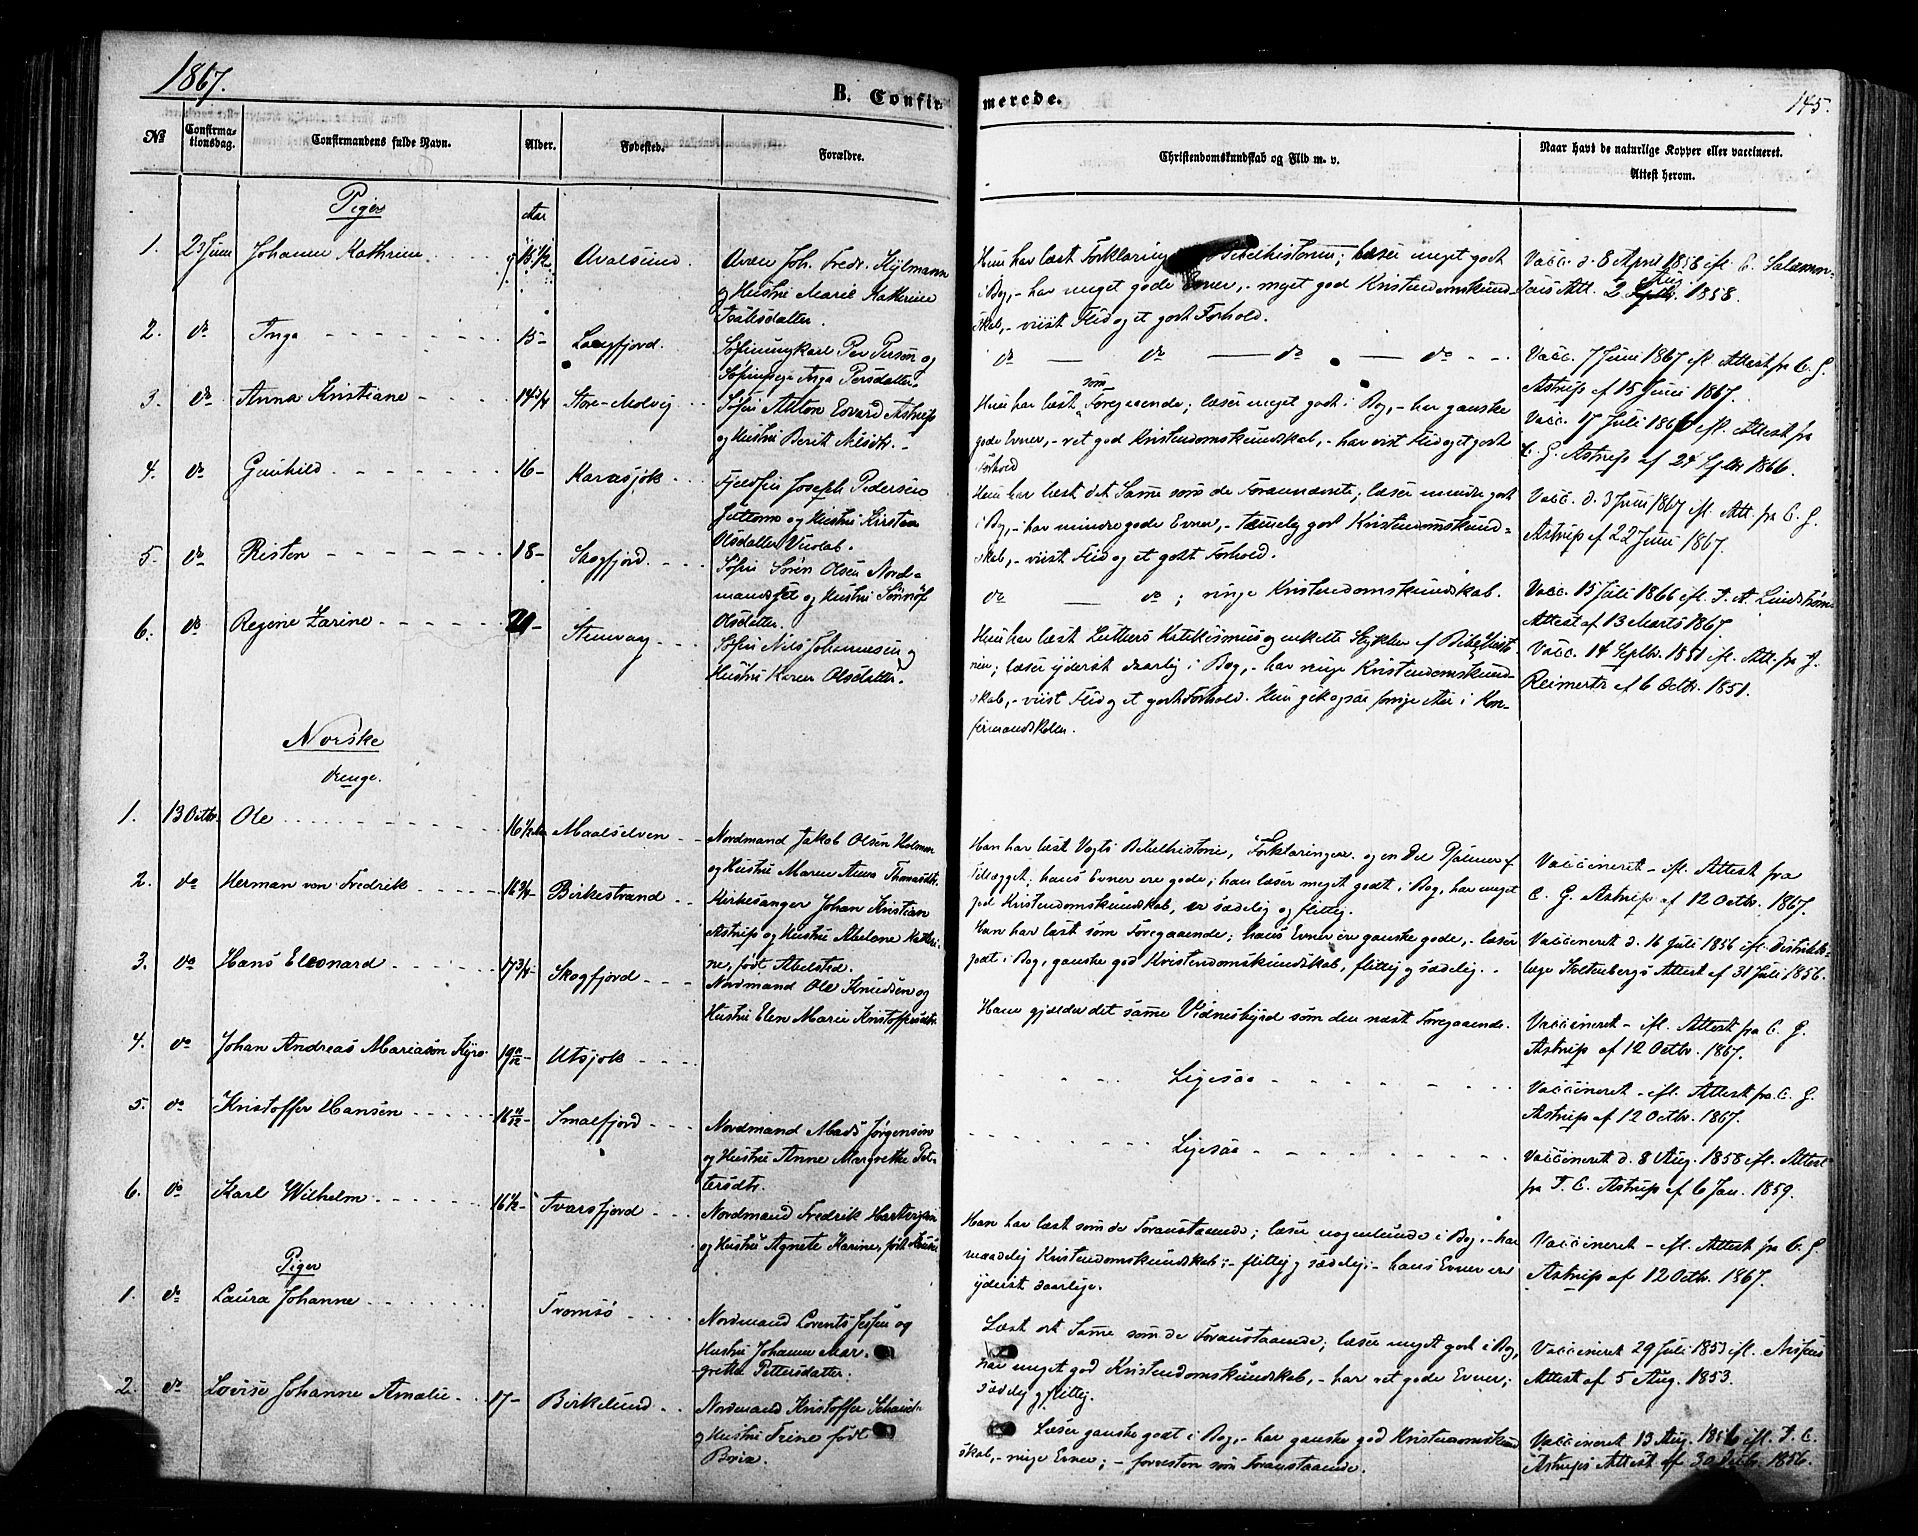 1867.
B. Confirmerede.
145.
No
Confirmationsdag.
Confirmandens fulde Navn.
Alder.
Fødested.
Forældre.
Christendomskundskab og Flid m. v.
Naar havt de naturlige Kopper eller vaccineret. Attest herom.
Piger
Aar
1. 23 Juni Johanne Kathrine 15 1/2
Joh. Fredr.
og Hustru Marie Kathrine
Hun har læst Forklaring Bibelhistorie; læser meget godt
i Bog, - har meget gode Evner, - meget god Kristendomskund-
skab, - viist Flid og et godt Forhold.
Vacc. d. 8 April 1858 ifl.
Att. 2 Aug. 1858.
2. do Inga 15 - Langfjord.
Per Persen og
Inga Persdatter.
do — do — do — do
Vacc. 7 Juni 1867 ifl. Attest fra C. G.
Astrup af 15 Juni 1867.
3. do Anna Kristiane 14 3/4 Store-Molvig
Søfin Anton Edvard Astrup
og Hustru Berit Nilsdtr.
Hun har læst som Foregaaende; læser meget godt i Bog, - har ganske
gode Evner, - ret god Kristendomskundskab, - har vist Flid og et godt
Forhold
Vacc. 17 Juli 1866 ifl. Attest fra
C. G. Astrup af 24 Septbr 1866.
4. do Gunhild 16 - Karasjok
Fjeldfin Joseph Pedersen
og Hustru Kirsten
Olsdatter
Hun har læst det Samme som de Forannævnte; læser mindre godt
i Bog, - har mindre gode Evner, - temmelig god Kristendomskund-
skab, - viist Flid og et godt Forhold.
Vacc. d. 3 Juni 1867 ifl. Att. fra C. G.
Astrup af 22 Juni 1867.
5. do Risten 18 - Skogfjord.
Søfin Sören Olsen Nord-
mandsset og Hustru
Olsdatter.
do — do; ringe Kristendomskundskab.
Vacc. 15 Juli 1866 ifl. T. A. Lindstrøms
Attest af 13 Marts 1867.
6. do Regine Zarine 20 - Stenvaag
Søfin Nils Johannesen og
Hustru Karen Olsdatter.
Hun har læst Luthers Katekismus og enkelte Stykker af Bibelhisto-
rien; læser yderst daarlig i Bog, - har ringe Kristendomskund-
skab, - viist Flid og et godt Forhold. Hun gik ogsaa forrige Aar i Kon-
firmandskolen.
Vacc. 14 Septbr. 1851 ifl. Att. fra J.
Reimerts af 6 Octbr. 1851.
Norske
drenge.
1. 13 Octbr. Ole 16 1/2 Maalselven
Nordmand Jakob Olsen
og Hustru Maren Anna Thomasdtr.
Han har læst Vogts Bibelhistorie, Forklaringen og en Del Psalmer af
Tillægget; hans Evner ere gode; han læser meget godt i Bog, har meget
god Kristendomskundskab, er sædelig og flittig.
Vaccineret - ifl. Attest fra
C. G. Astrup af 12 Octbr. 1867.
2. do Herman von Fredrik 16 3/4 - Birkestrand
Kirkesanger Johan Kristian
Astrup og Hustru Abelone Kathri-
ne, født Abelsted.
Han har læst som Foregaaende; hans Evner ere ganske gode, - læser
godt i Bog, ganske god Kristendomskundskab, flittig og sædelig.
Vaccineret d. 16 Juli 1856 ifl. Distrikts-
læge Stoltenbergs Attest af 31 Juli 1856.
3. do Hans Eleonard 17 3/4 - Skogfjord
Nordmand Ole Knudsen og
Hustru Elen Marie Kristoffersdtr.
Ham gjælder det samme Vidnesbyrd som den næst Foregaaende.
Vaccineret - ifl. Attest fra C. G.
Astrup af 12 Octbr. 1867.
4. do Johan Andreas Mariason Kyrö 19 Utsjok
Ligesaa
Vaccineret - ifl. Attest fra C. G.
Astrup af 12 Octbr. 1867.
5. do Kristoffer Hansen 16 Smalfjord
Nordmand Mads Jørgensen
og Hustru Anne Margrethe Pet-
tersdtr.
Ligesaa
Vaccineret d. 8 Aug. 1858 ifl. Attest
fra T. C. Astrup af 6 Jan. 1859.
6. do Karl Wilhelm 16 1/2 - Tvarsfjord
Nordmand Fredrik
og Hustru Agnete Karine, født
Han har læst som de Foranstaaende; læser nogenlunde i Bog, - har
maadelig Kristendomskundskab; - flittig og sædelig; - hans Evner ere
yderst daarlige.
Vaccineret - ifl. Attest fra C. G.
Astrup af 12 Octbr. 1867.
Piger
1. do Laura Johanne Tromsö
Nordmand Lorents Jessen og
Hustru Johanne Mar-
gretha Pettersdatter.
Læst det Samme som de Foranstaaende; læser meget godt i Bog,
har meget god Kristendomskundskab, - har ret gode Evner;
sædelig og flittig.
Vaccineret 29 Juli 1853 ifl.
Attest af 5 Aug. 1853.
2. do Lovise Johanne Amalie 17 - Birkelund
Nordmand Kristoffer
og Hustru Trine født
Læser ganske godt i Bog, - har ganske god Kristendomskund-
skab, - ringe Evner; - forresten som Foranstaaende.
Vaccineret 13 Aug. 1856 ifl. T. C.
Astrups Attest af 30 1856.